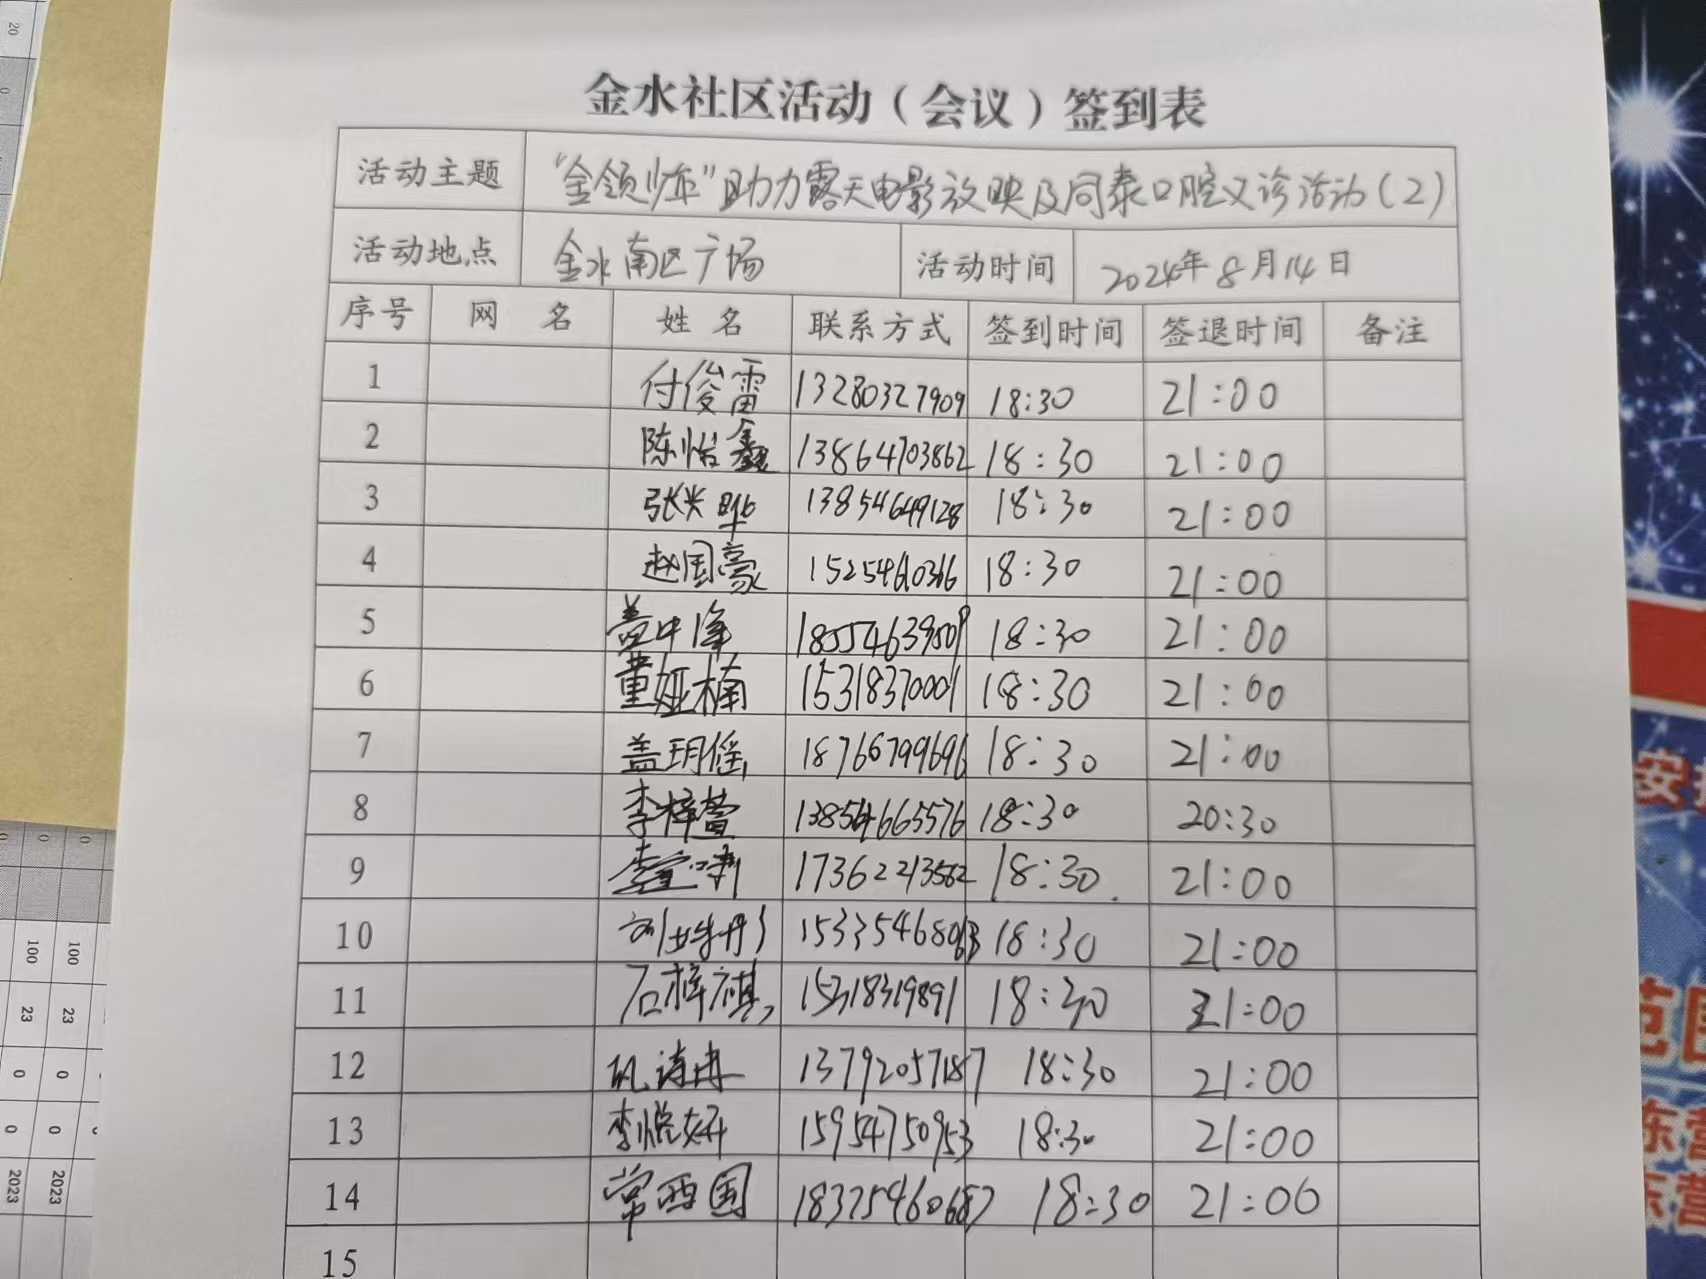 金水社区活动（会议）签到表
活动主题 “金领少年”助力露天电影放映及同泰口腔义诊活动（2）
活动地点 金水南区广场 活动时间 2024年8月14日
序号 网 名 姓 名 联系方式 签到时间 签退时间 备注
1 付俊雷 13280327909 18:30 21:00
2 陈怡鑫 13864703862 18:30 21:00
3 张兴晔 13854649128 18:30 21:00
4 赵国豪 15254610366 18:30 21:00
5 盖中泽 18554639509 18:30 21:00
6 董娅楠 15318370001 18:30 21:00
7 盖玥傜 18766799696 18:30 21:00
8 李梓萱 13854665576 18:30 20:30
9 17362213562 18:30 21:00
10 18:30 21:00
11 石梓祺 15318319891 18:30 21:00
12 诗冉 13792057187 18:30 21:00
13 李悦妍 15954750953 18:30 21:00
14 常西国 18325460687 18:30 21:00
15
20
0
0
0
0
100
100
23
23
0
0
0
0
2023
2023
安
范围
东营
东营